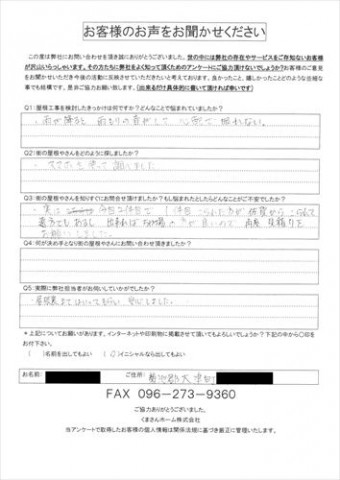 お客様のお声をお聞かせください
この度は弊社にお問い合わせ頂き誠にありがとうございました。世の中には弊社の存在やサービスをご存知ないお客様
が沢山いらっしゃいます。その方たちに弊社をよく知って頂くためのアンケートにご協力頂けないでしょうか？お客様のご意見
をお聞かせいただき今後の活動に反映させていただきたいと考えております。良かったこと、嬉しかったことどのような些細な
事でも結構です。是非ご協力お願い致します。(出来るだけ具体的に書いて頂ければ幸いです)
Q1:屋根工事を検討したきっかけは何ですか？どんなことで悩まれていましたか？
・雨が降ると 雨もりの音がして 心配で 眠れない。
Q2:街の屋根やさんをどのように探しましたか？
・スマホを使って 調しました
Q3:街の屋根やさんを知りすぐにお問合せ頂けましたか？もし悩まれたとしたらどんなことがご不安でしたか？
遠方でもあるし 出来れば
お願いしました。
Q4:何が決め手となり街の屋根やさんにお問い合わせ頂きましたか？
Q5:実際に弊社担当者がお伺いしていかがでしたか？
・屋根裏まではいってもらい 安心しました。
＊上記についてお願いがあります。インターネットや印刷物に掲載させて頂いてもよろしいでしょうか？下記の中から〇印を
お付下さい。
( )名前を出してもよい (〇)イニシャルなら出してもよい
お名前: ご住所: 菊池郡大津町
FAX 096-273-9360
ご協力ありがとうございました。
くまさんホーム株式会社
当アンケートで取得したお客様の個人情報は関係法規に基づき厳正に管理いたします。